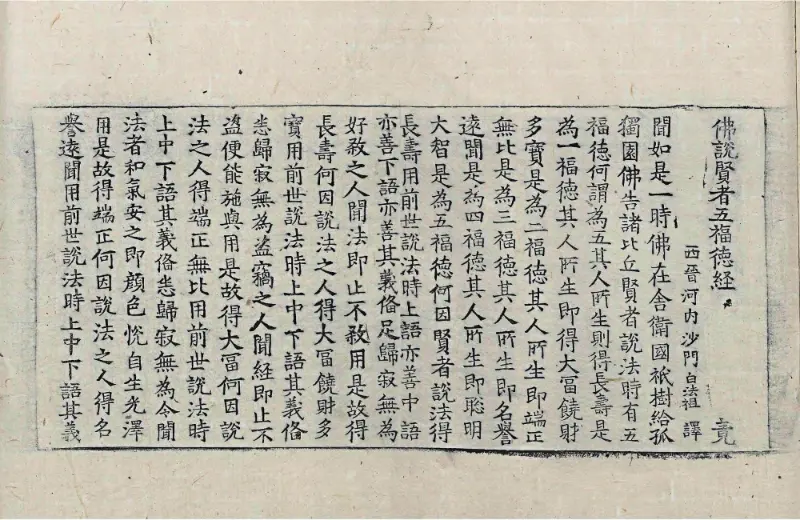 佛說賢者五福徳経 竟
西晉河内沙門白法祖 譯
聞如是一時佛在舍衛國祇樹給孤
獨園佛告諸比丘賢者說法時有五
福徳何謂為五其人所生則得長壽是
為一福徳其人所生即得大冨饒財
多寶是為二福徳其人所生即端正
無比是為三福徳其人所生即名譽
遠聞是為四福徳其人所生即聡明
大智是為五福徳何因賢者說法得
長壽用前世說法時上語亦善中語
亦善下語亦善其義俻足歸寂無為
好煞之人聞法即止不煞用是故得
長壽何因說法之人得大冨饒財多
寶用前世說法時上中下語其義俻
悉歸寂無為盗竊之人聞經即止不
盗便能施與用是故得大冨何因說
法之人得端正無比用前世說法時
上中下語其義俻悉歸寂無為令聞
法者和氣安之即顔色恱自生光澤
用是故得端正何因說法之人得名
譽遠聞用前世說法時上中下語其義